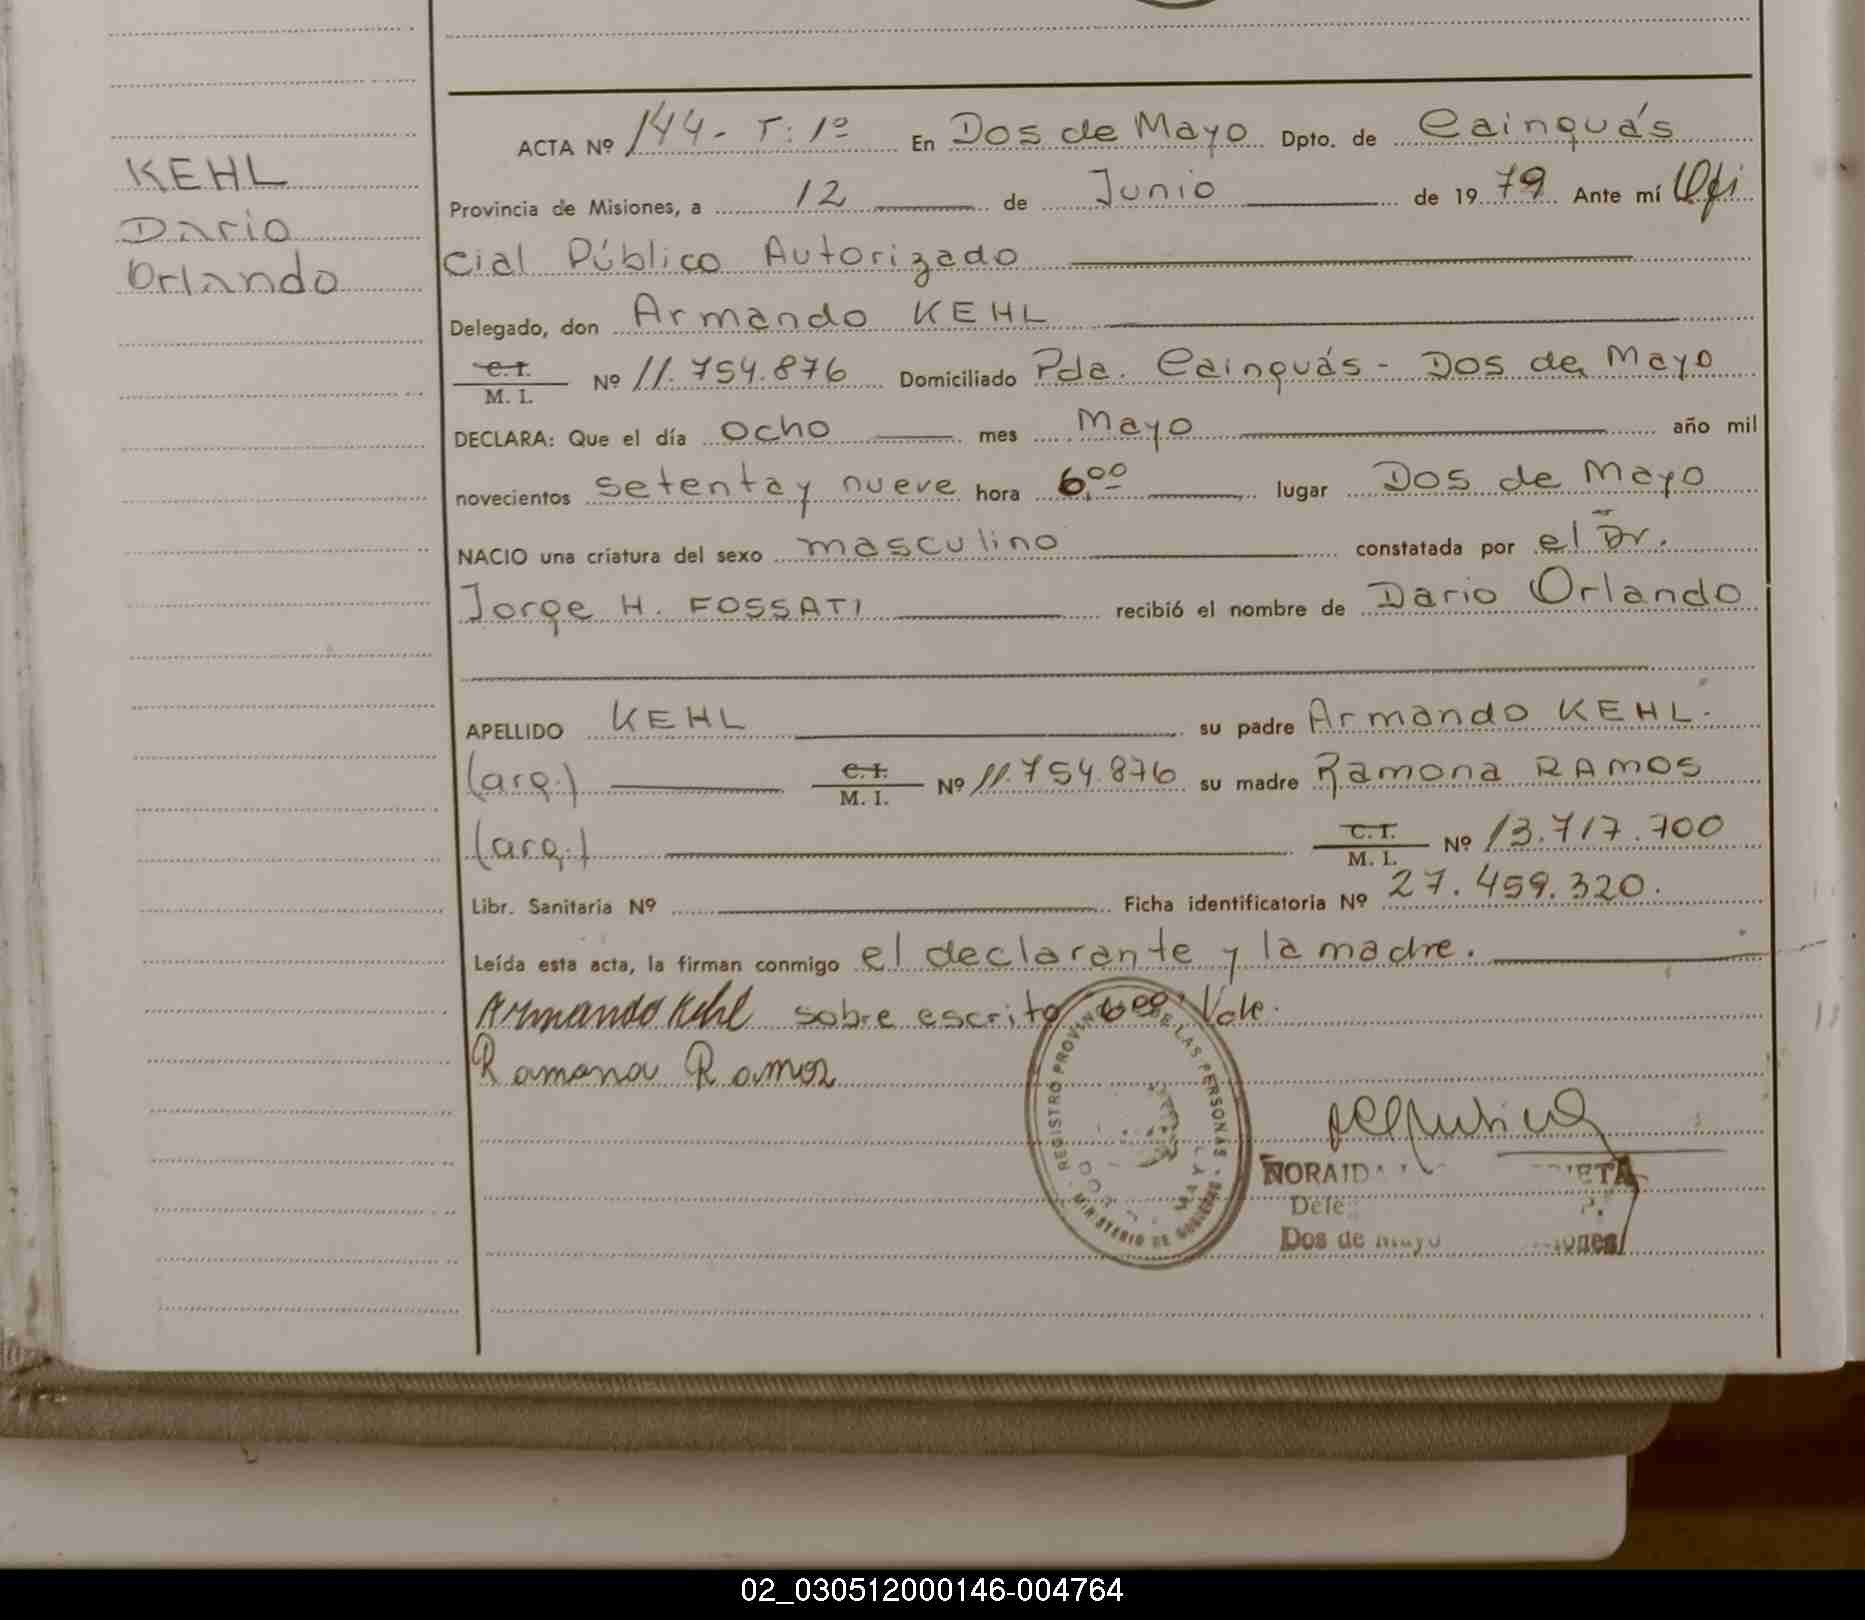 KEHL
Dario
Orlando
ACTA Nº 144- T: 1º En Dos de Mayo Dpto. de Cainguás
Provincia de Misiones, a 12 de Junio de 1979 Ante mí Ofi
cial Público Autorizado
Delegado, don Armando KEHL
C.I.
M. I. Nº 11.754.876 Domiciliado Pda. Cainguás - Dos de Mayo
DECLARA: Que el día ocho mes Mayo año mil
novecientos setenta y nueve hora 6,00 lugar Dos de Mayo
NACIO una criatura del sexo masculino constatada por el Dr.
Jorge H. FOSSATI recibió el nombre de Dario Orlando
APELLIDO KEHL su padre Armando KEHL.
(arg.) C.I.
M. I. Nº 11.754.876 su madre Ramona RAMOS
(arg.) C.I.
M. I. Nº 13.717.700
Libr. Sanitaria Nº Ficha identificatoria Nº 27.459.320.
Leída esta acta, la firman conmigo el declarante y la madre.
Armando Kehl sobre escrito 6,00 Vale.
Ramona Ramos
REGISTRO PROVINC DE LAS PERSONAS - MINISTERIO DE GOBIERNO
NORAID
Dos de Mayo
02_030512000146-004764